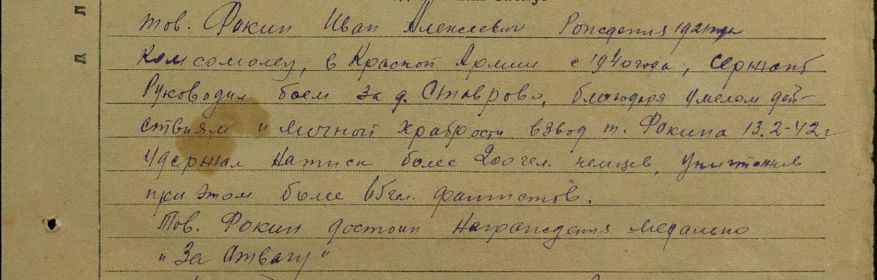 тов. Фокин Иван Алексеевич Рождения 1921 года
Комсомолец, в Красной Армии с 1940 года, сержант
Руководил боем за д. Ставрово, благодаря умелом дей-
ствиям и личной храбрости взвод т. Фокина 13.2-42 г
Удержал натиск более 200 чел. немцев, уничтожив
при этом более чел. фашистов.
Тов. Фокин достоин награждения медалью
"За Отвагу"